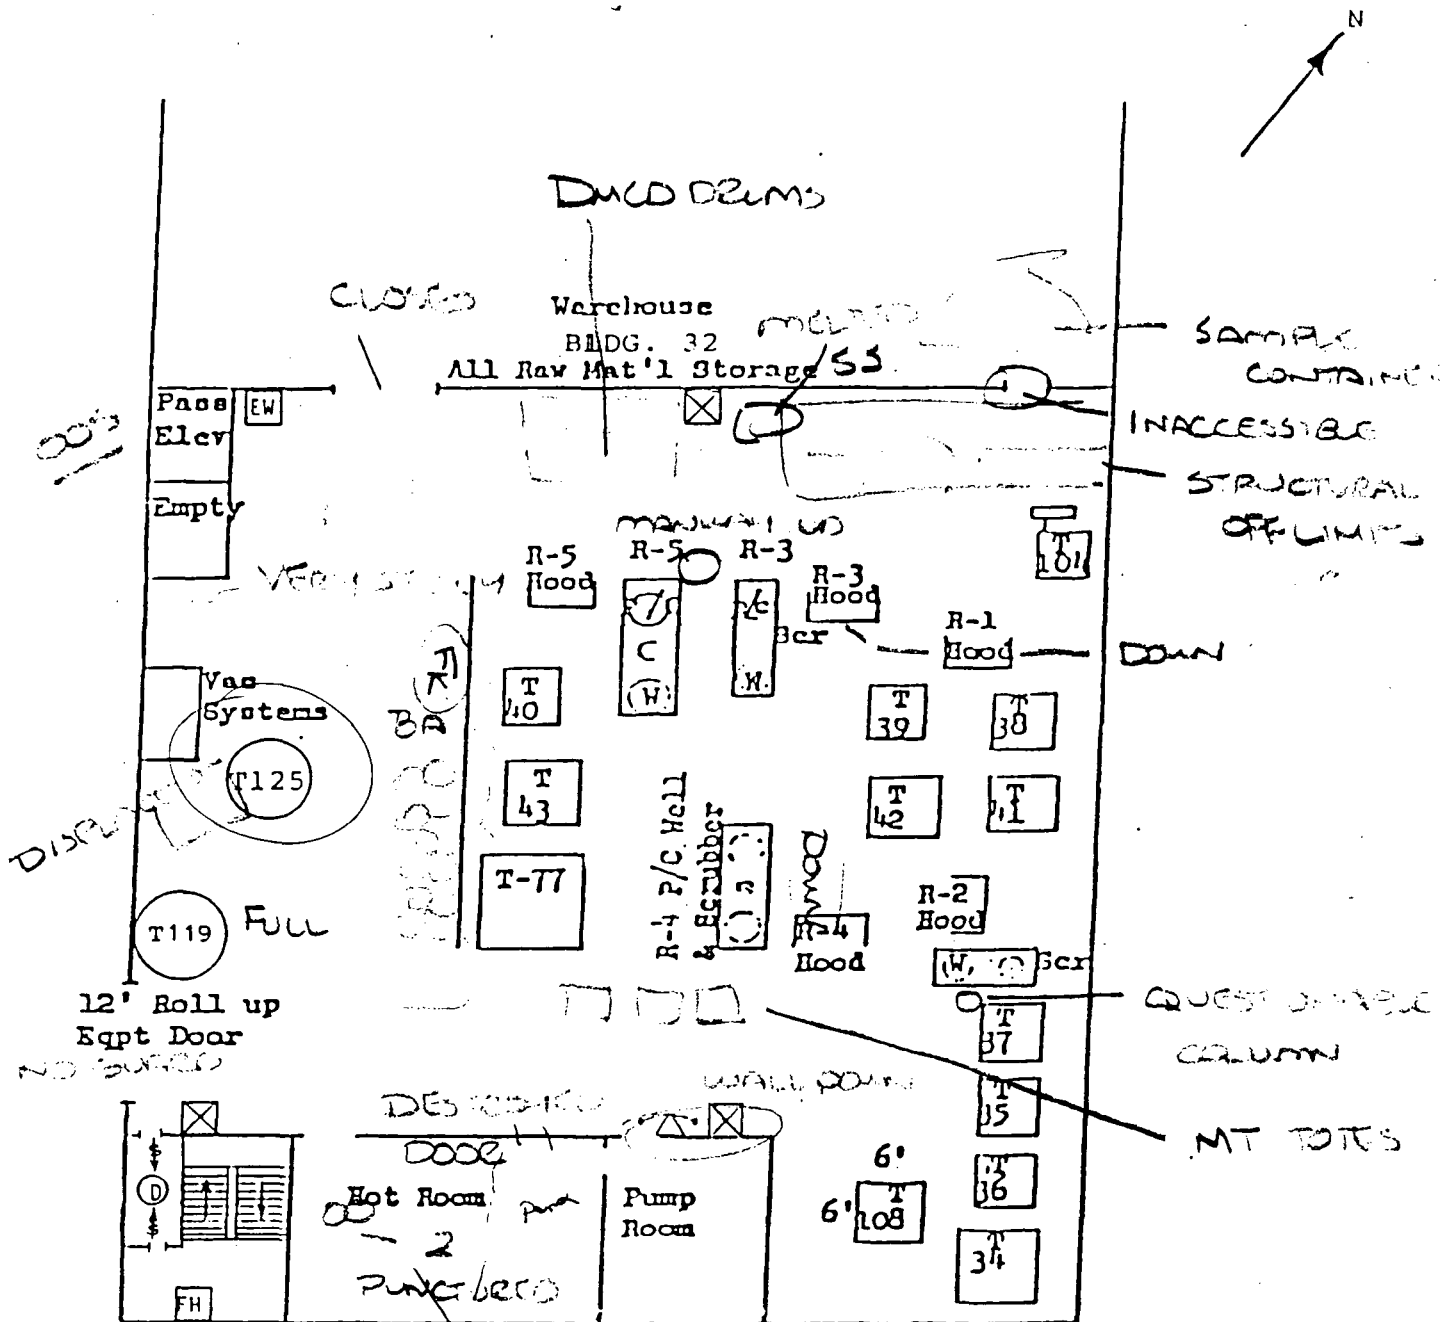 N
DMCD DRUMS
CLOSED
Warehouse
BLDG. 32
All Raw Mat'l Storage
MELTED
SS
SAMPLE
CONTAINE
INACCESSIBLE
STRUCTURAL
OFF LIMITS
Pass
Elev
EW
Empty
MANWAY UP
R-5
Hood
R-5
R-3
R-3
Hood
Scr
T
101
R-1
Hood
DOWN
C
W
/C
W.
Vac
Systems
T125
T
40
T
39
T
38
BA
T
43
T
42
T
41
T-77
R-4 P/C Hell
& Scrubber
DOWN
R-4
Hood
R-2
Hood
W.
Scr
T119
FULL
12' Roll up
Eqpt Door
QUESTIONABLE
COLUMN
T
37
T
35
MT TOTES
WALL DOWN
DOOR
D
Hot Room
2
PUNCTURED
Pump
Room
6'
6'
T
108
T
36
T
34
FH